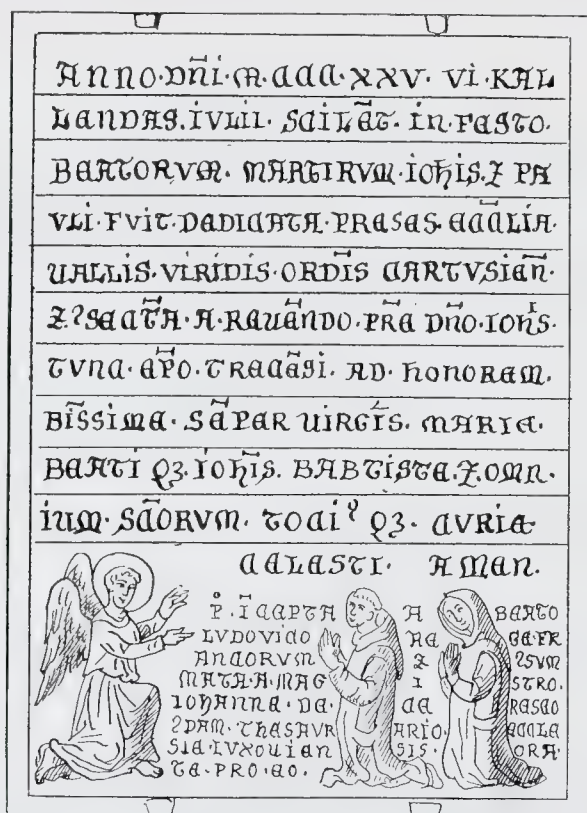 ANNO·DN̄I·M·CCC·XXV·VI·KAL
LENDAS.IVLII·SCILC̄ET·IN·FESTO·
BEATORVM·MARTIRVM·IOH̄IS·Z PA
VLI·FVIT·DEDICATA·PRESES·ECC̄LIA·
UALLIS·VIRIDIS·ORDĪS CARTVSIEN̄·
Z ꝯSEC̄TA·A·REUĒNDO·PR̄E DN̄O·IOHS·
TVNC·EP̄O·TRECĒSI·AD·HONOREM·
BĪSSIME·SĒPER UIRGĪS·MARIE·
BEATI Q3·IOH̄IS·BABTISTE·Z·OMN·
IUM·SC̄ORVM·TOCIꝰ Q3·CVRIE
CELESTI· AMEN.
P̊·ĪCEPTA A BEATO
LVDOVICO RE GE·FR
ANCORVM Z ꝯSVM
MATA·A·MAG I STRO·
IOHANNE·DE· CE RESCO
ꝯDAM·THESAVR ARIO· ECCLE
SIE·LVXOUIEN SIS· ORA·
TE·PRO·EO·